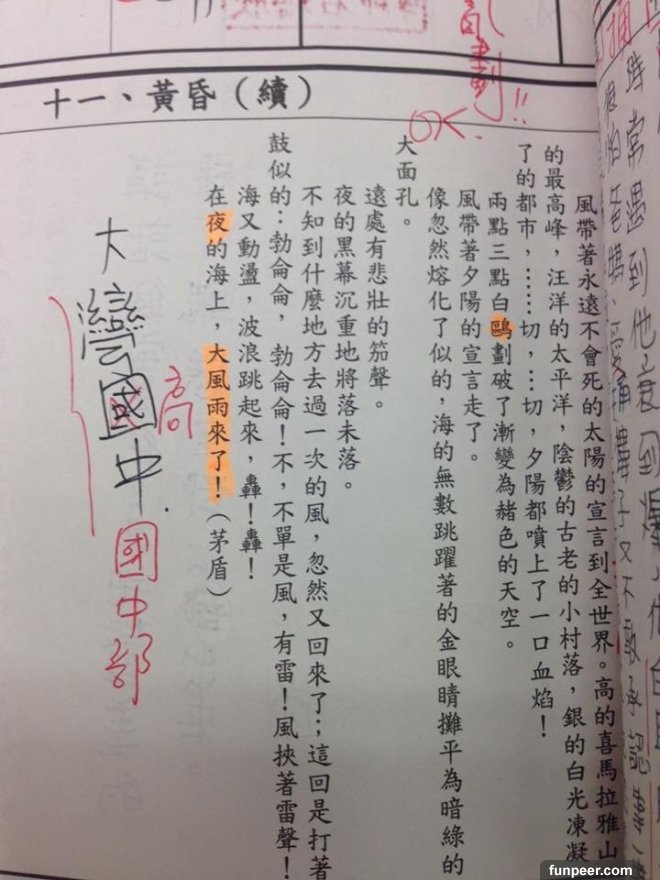 時常遇到他衰到爆
OK.
十一、黃昏(續)
風帶著永遠不會死的太陽的宣言到全世界。高的喜馬拉雅山
的最高峰,汪洋的太平洋,陰鬱的古老的小村落,銀的白光凍凝
了的都市,……切,…切,夕陽都噴上了一口血焰!
兩點三點白鷗劃破了漸變為赭色的天空。
風帶著夕陽的宣言走了。
像忽然熔化了似的,海的無數跳躍著的金眼睛攤平為暗綠的
大面孔。
遠處有悲壯的笳聲。
夜的黑幕沉重地將落未落。
不知到什麼地方去過一次的風,忽然又回來了;這回是打著
鼓似的:勃侖侖,勃侖侖!不,不單是風,有雷!風挾著雷聲!
海又動盪,波浪跳起來,轟!轟!
在夜的海上,大風雨來了!(茅盾)
高
大灣國中.
國中部
funpeer.com